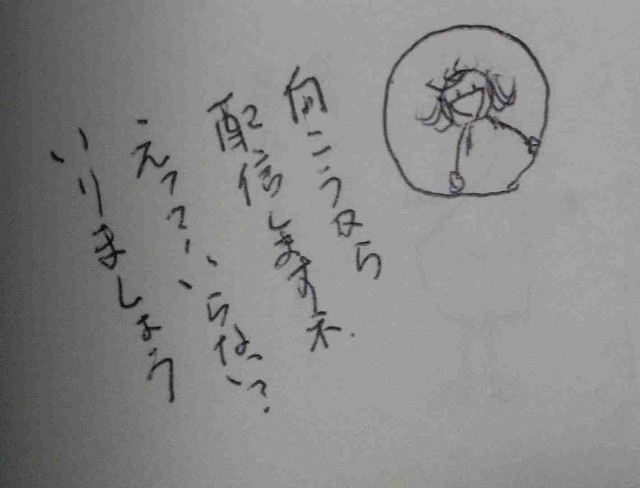 向こうから
配信しますネ.
えっていらない?
いりましょう